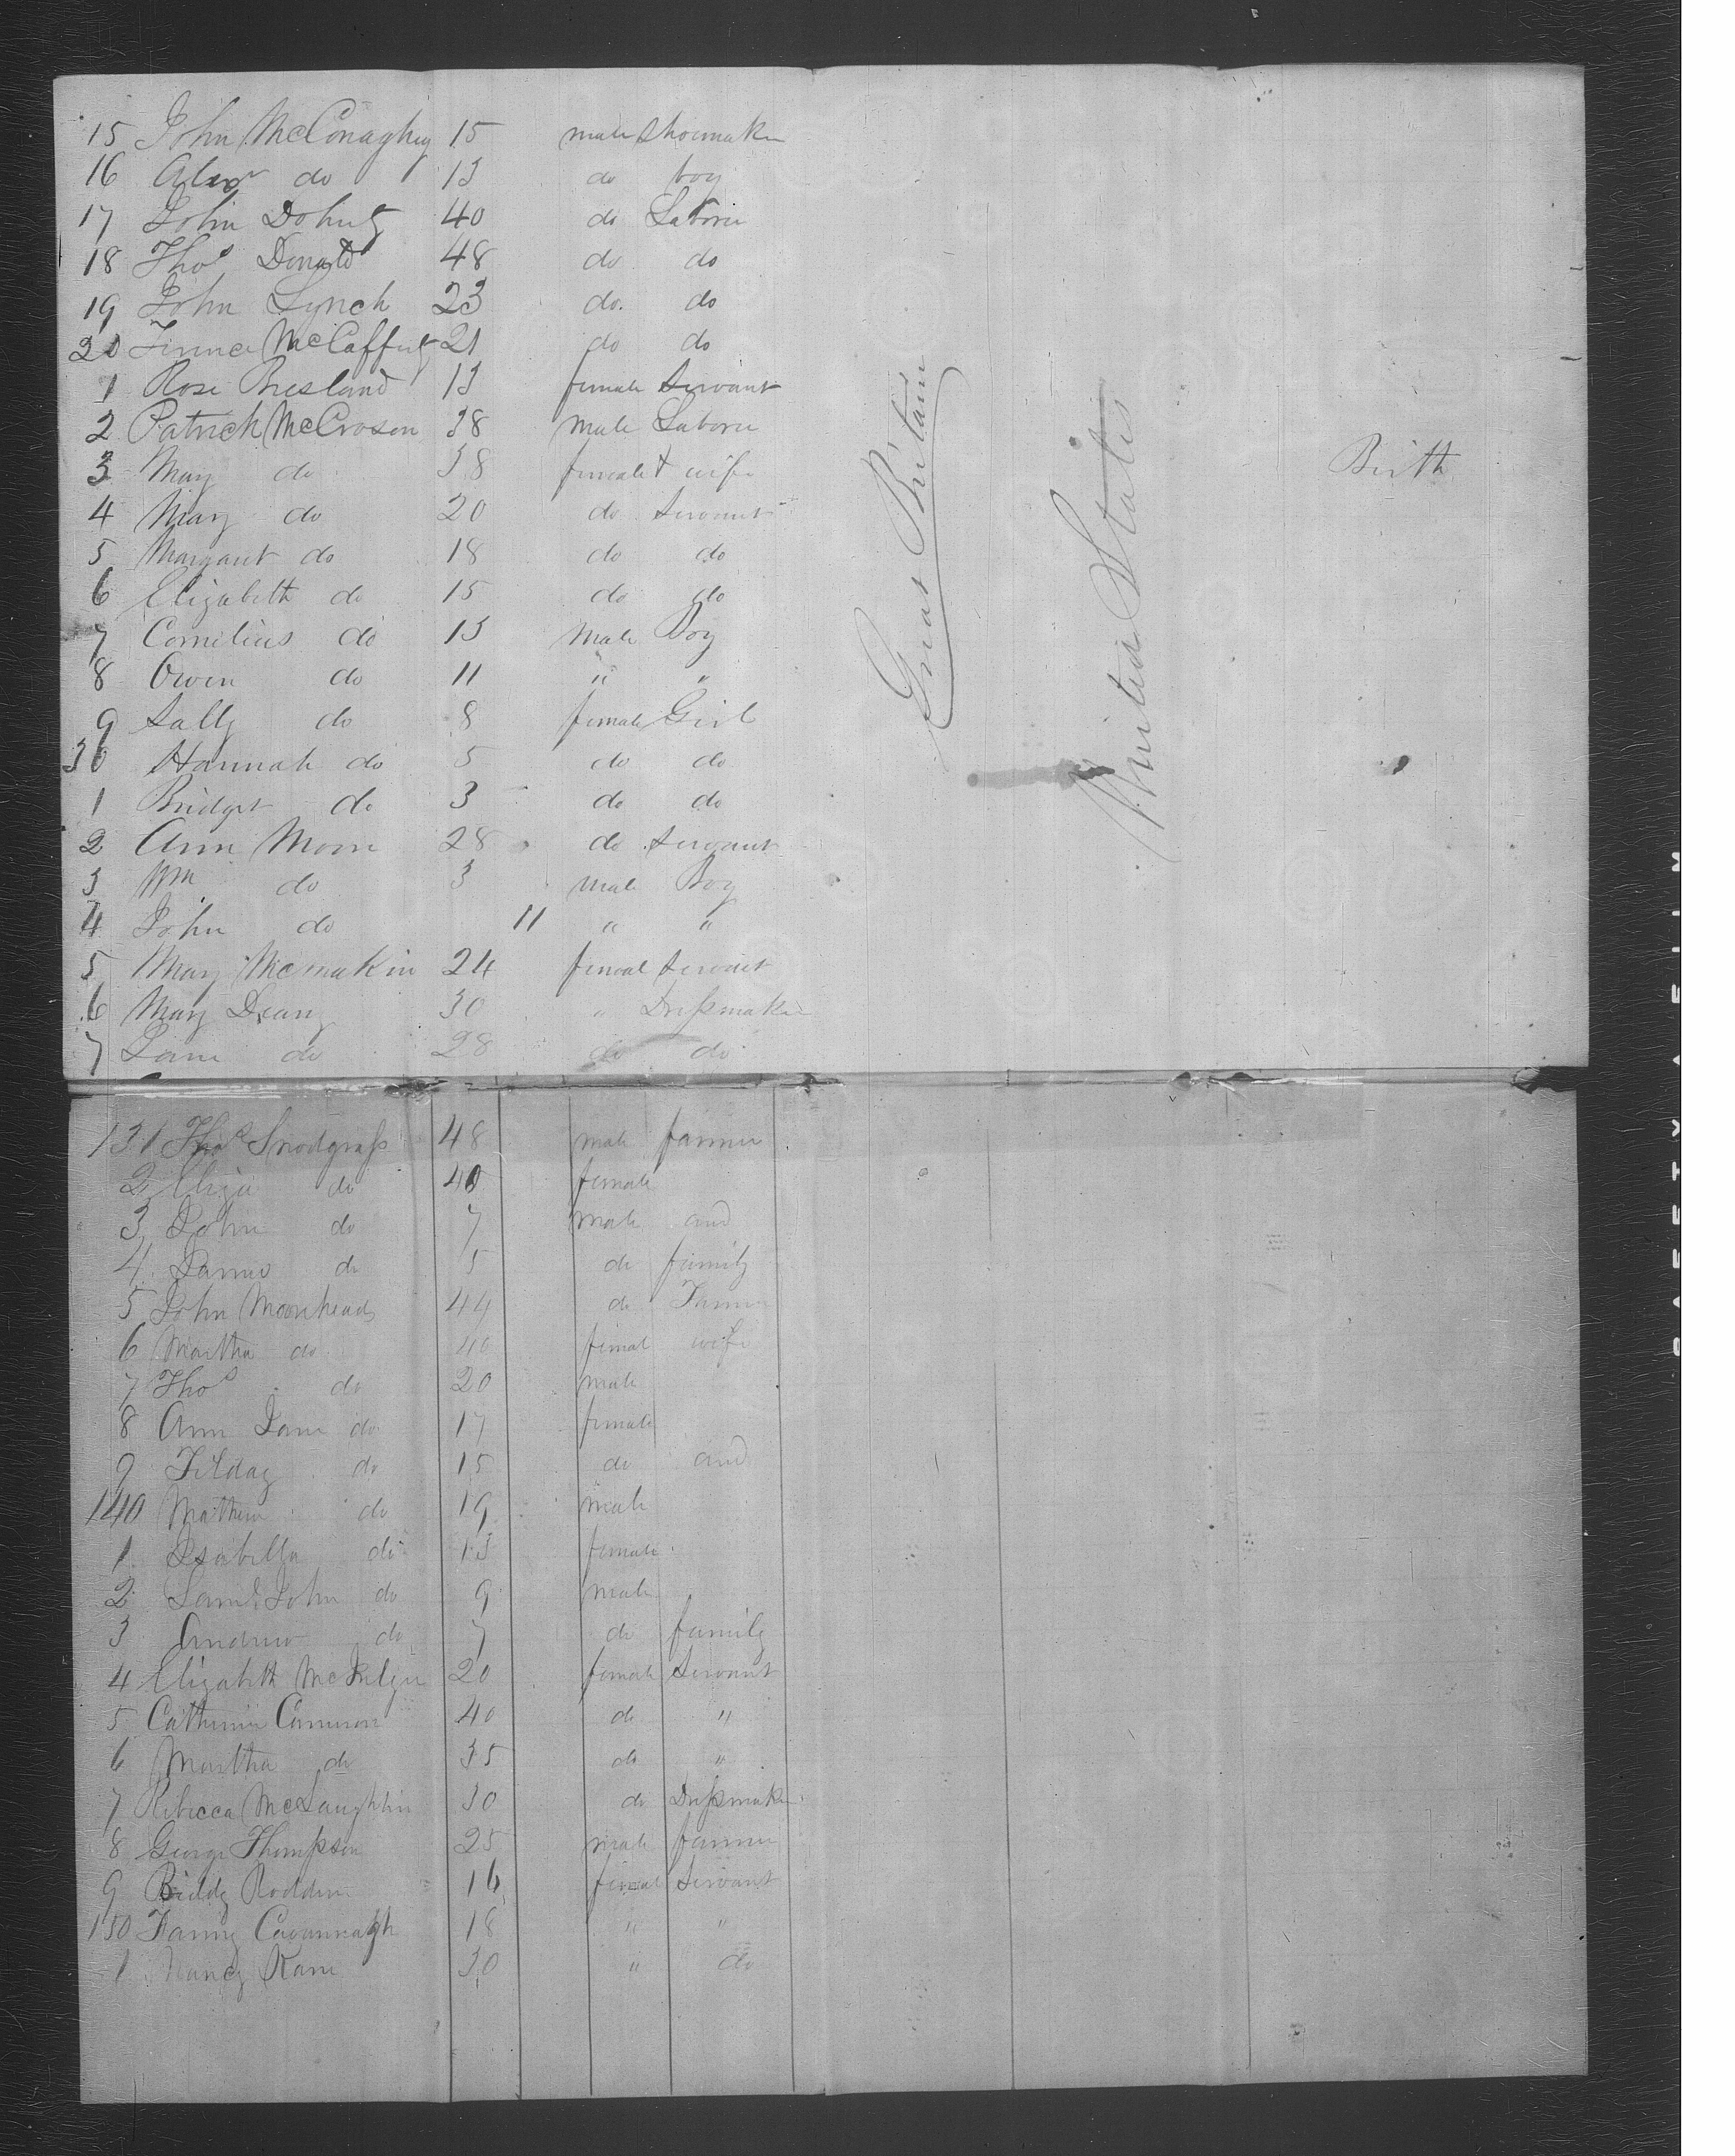 15 John McConaghey 15 male Shoemaker
16 Alexr do 13 do boy
17 John Dohety 40 do Laborer
18 Thos Donald 48 do do
19 John Lynch 23 do. do
20 McCafferty 21 do do
1 Rose Bresland 13 female Servant
2 Patrick McCroson 38 male Laborer
3 Mary do 38 female wife
4 Mary do 20 do Servant
5 Margaret do 18 do do
6 Elizabeth do 15 do do
7 Cornelius do 13 Male Boy
8 Owen do 11 " "
9 Sally do 8 female Girl
30 Hannah do 5 do do
1 Bridget do 3 do do
2 Ann Moon 28 do Servant
3 Wm do 3 male Boy
4 John do 11 " "
5 Mary Mcmakin 24 femal Servant
6 Mary Dean 30 " Dressmaker
7 Jane do 28 do do
Great Britain
United States
Birth
131 Thos Snodgrass 48 male farmer
2 Eliza do 40 female
3 John do 7 male and
4 James do 5 do family
5 John Moorhead 44 do Farmer
6 Martha do 40 femal wife
7 Thos do 20 male
8 Ann Jane do 17 female
9 do 15 do and
140 Mathew do 19 male
1 Isabella do 13 female
2 John do 9 male
3 Andrew do 7 do family
4 Elizabeth 20 female Servant
5 Catherine Cameron 40 do "
6 Martha do 35 do "
7 Rebecca McLaughlin 30 do Dressmaker
8 George Thompson 25 male farmer
9 Biddy Rodden 16 femal Servant
150 Fanny Cavannagh 18 " "
1 Nancy Kane 30 " do
SAFETY FILM